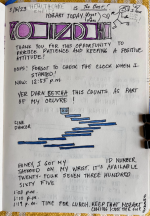 THANK YOU FOR THIS OPPORTUNITY TO
PRACTICE PATIENCE AND KEEPING A POSITIVE
ATTITUDE!
OOPS! FORGOT TO CHECK THE CLOCK WHEN I
STARTED!
NOW: 12:57 P.M.
YER DARN BETCHA THIS COUNTS AS PART
OF MY OEUVRE!
STAR
DANCER
HONEY, I GOT MY ID NUMBER
TATTOOED ON MY WRIST. IT'S AVAILABLE
TWENTY FOUR SEVEN THREE HUNDRED
SIXTY FIVE
1:00 P.M.
1:10 P.M.
1:17 P.M. TIME FOR LUNCH. KEEP THAT